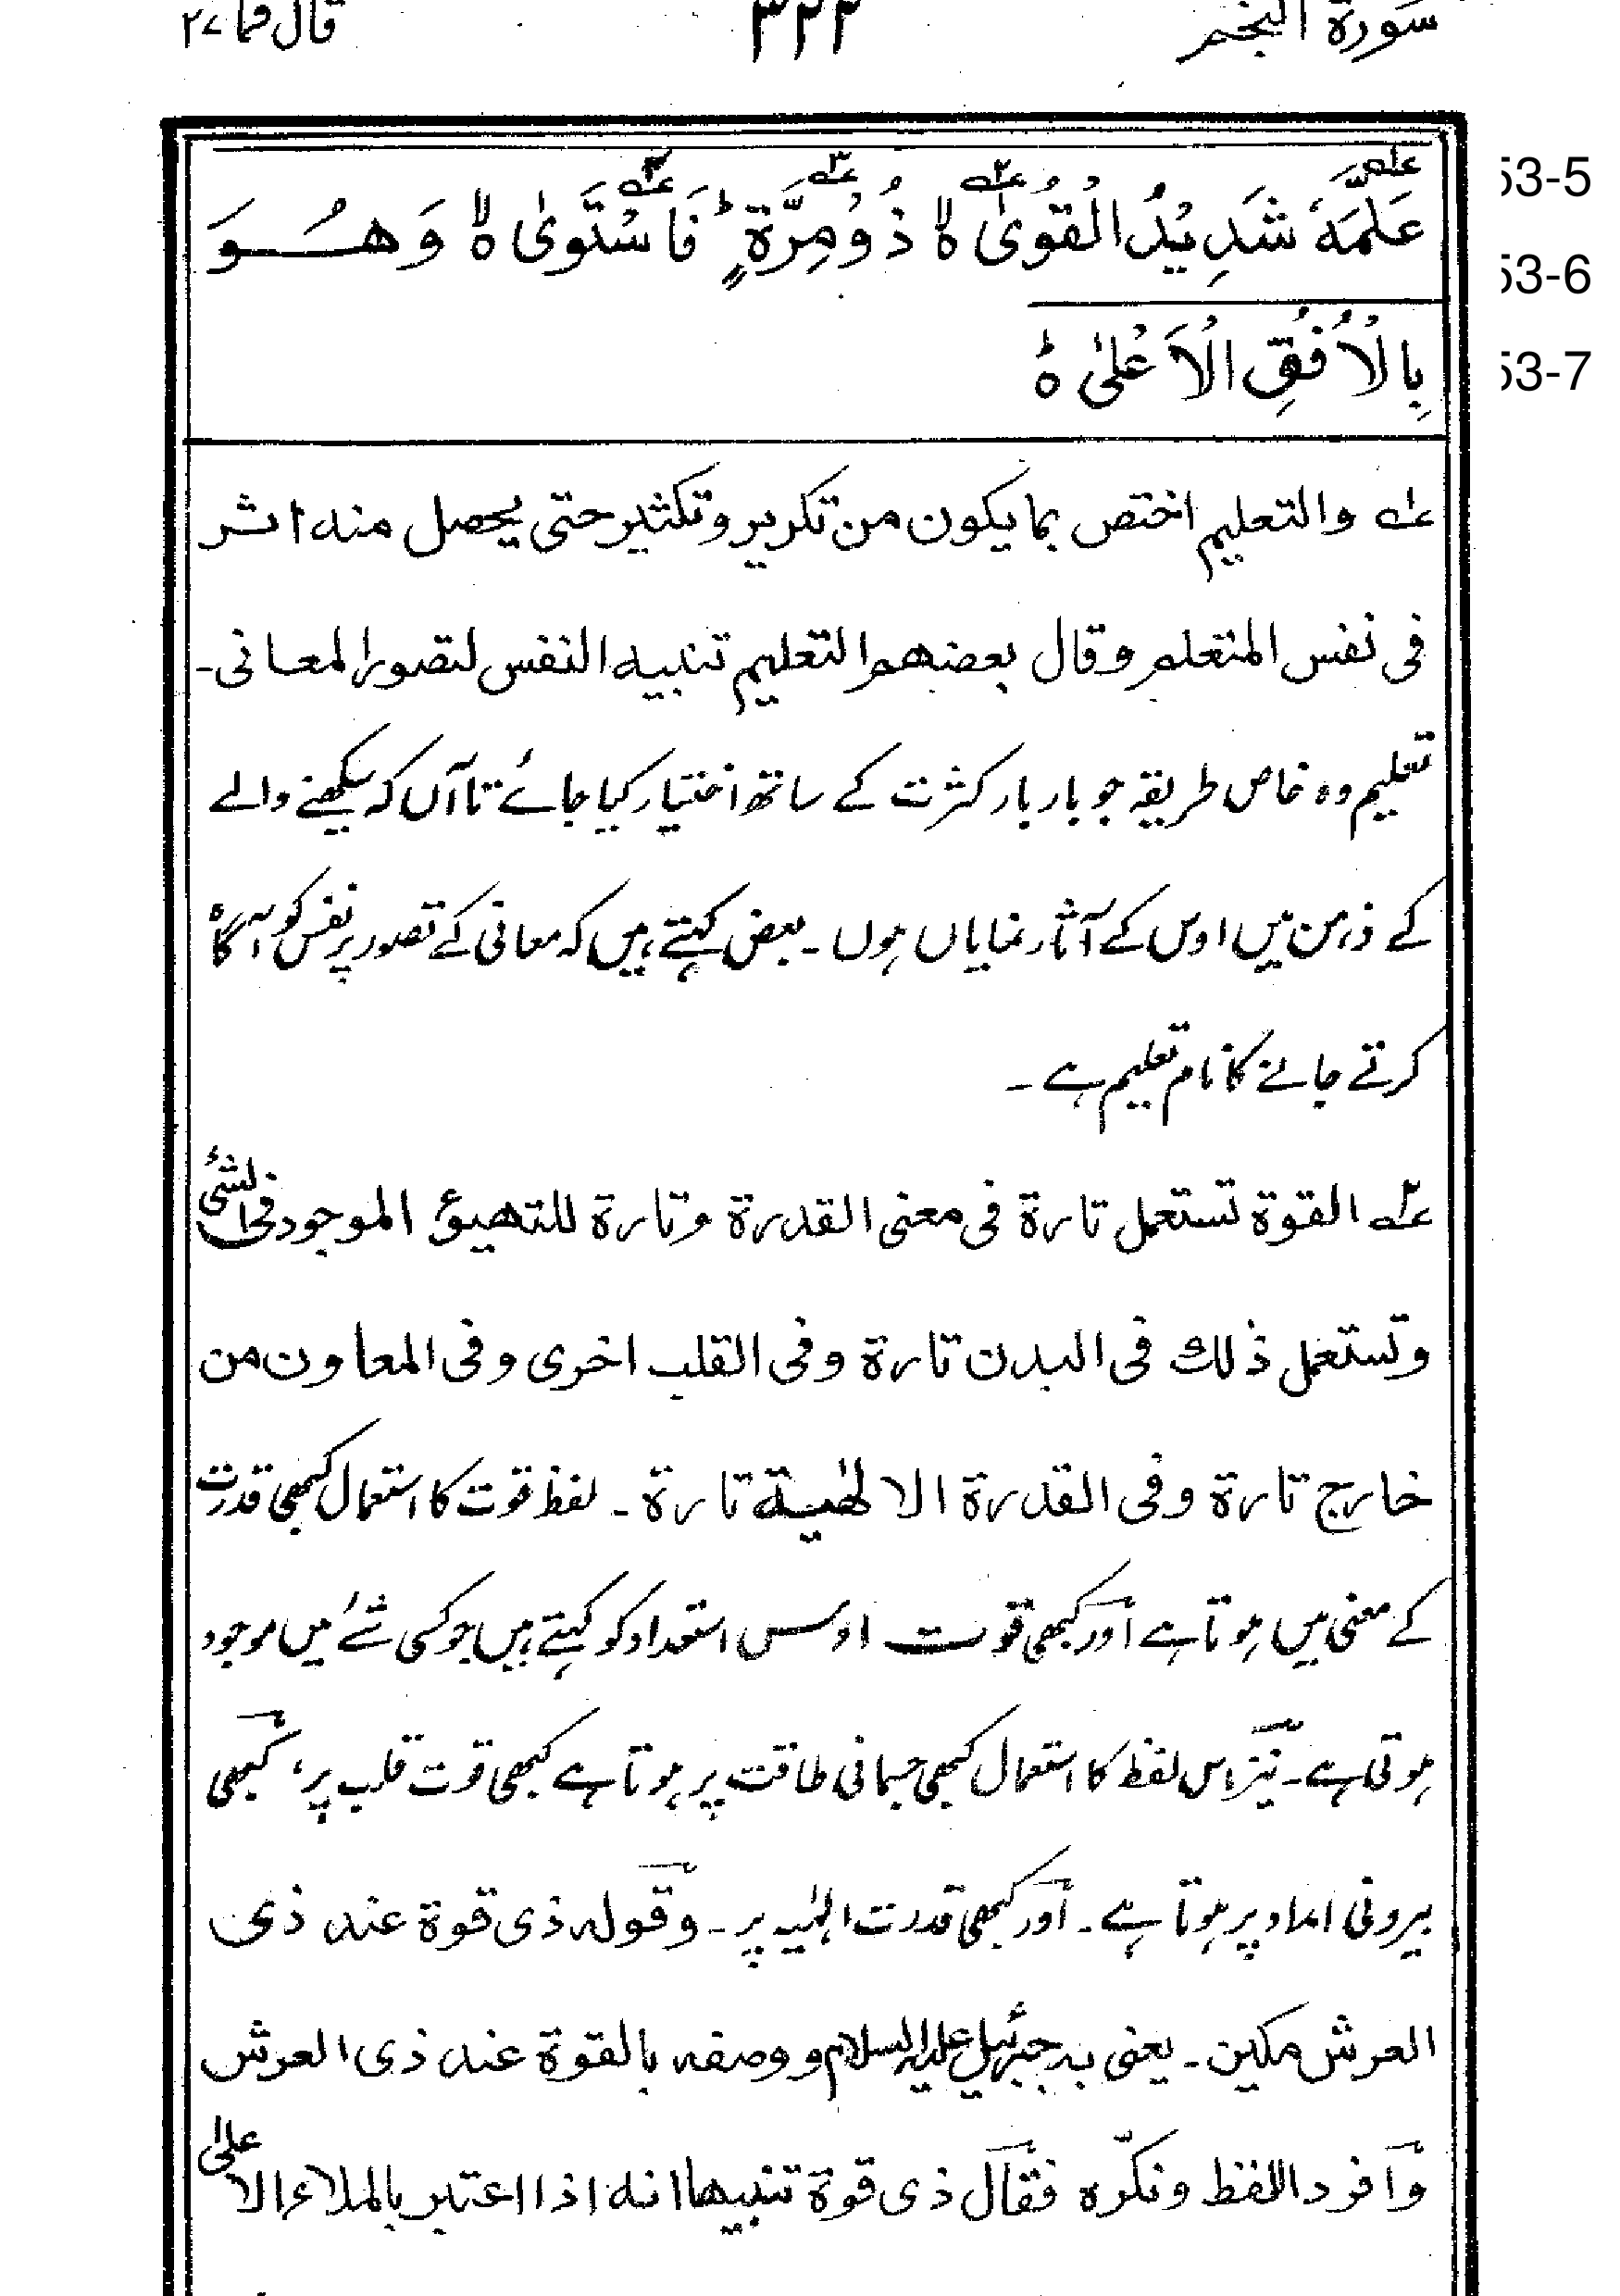 سورۃ النجم ۳۲۳ قال فما ۲۷
عَلَّمَہٗ شَدِیْدُ الْقُوٰی ۙ ذُوْمِرَّۃٍ ؕ فَاسْتَوٰی ۙ وَھُوَ
53-5
53-6
بِالْاُفُقِ الْاَعْلٰی ؕ
53-7
۱ والتعلیم اختص بما یکون من تکریر وتکثیر حتی یحصل منہ اثر
فی نفس المتعلم وقال بعضھم التعلیم تنبیہ النفس لتصور المعانی۔
تعلیم وہ خاص طریقہ جو بار بار کثرت کے ساتھ اختیار کیا جائے تا آں کہ سیکھنے والے
کے ذہن میں اوس کے آثار نمایاں ہوں۔ بعض کہتے ہیں کہ معانی کے تصور پر نفس کو آگاہ
کرتے جانے کا نام تعلیم ہے۔
۲ القوۃ تستعمل تارۃ فی معنی القدرۃ وتارۃ للتھیؤ الموجود فی الشئ
وتستعمل ذلک فی البدن تارۃ وفی القلب اخری وفی المعاون من
خارج تارۃ وفی القدرۃ الالٰھیۃ تارۃ۔ لفظ قوت کا استعمال کبھی قدرت
کے معنی میں ہوتا ہے اور کبھی قوت اوس استعداد کو کہتے ہیں جو کسی شئے میں موجود
ہوتی ہے۔ نیز اس لفظ کا استعمال کبھی جسمانی طاقت پر ہوتا ہے کبھی قوت قلب پر، کبھی
بیرونی امداد پر ہوتا ہے۔ اور کبھی قدرت الٰہیہ پر۔ وقولہ ذی قوۃ عند ذی
العرش مکین۔ یعنی بہ جبرئیل علیہ السلام ووصفہ بالقوۃ عند ذی العرش
وافرد اللفظ ونکّرہ فقال ذی قوۃ تنبیھا انہ اذا اعتبر بالملاء الاعلیٰ